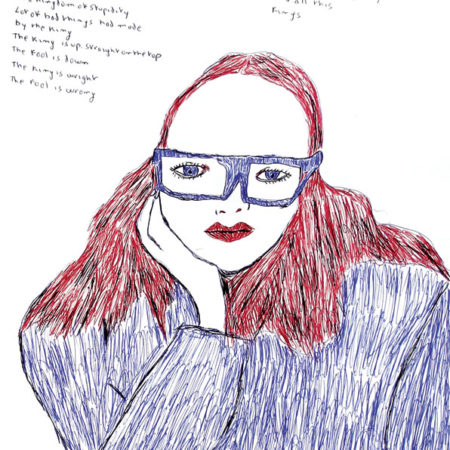 kingdom of stupidity
Lot of bad things had made
by the King
The King is up straight on the top
The Fool is down
The King is wright
The Fool is wrong
all this
Kings